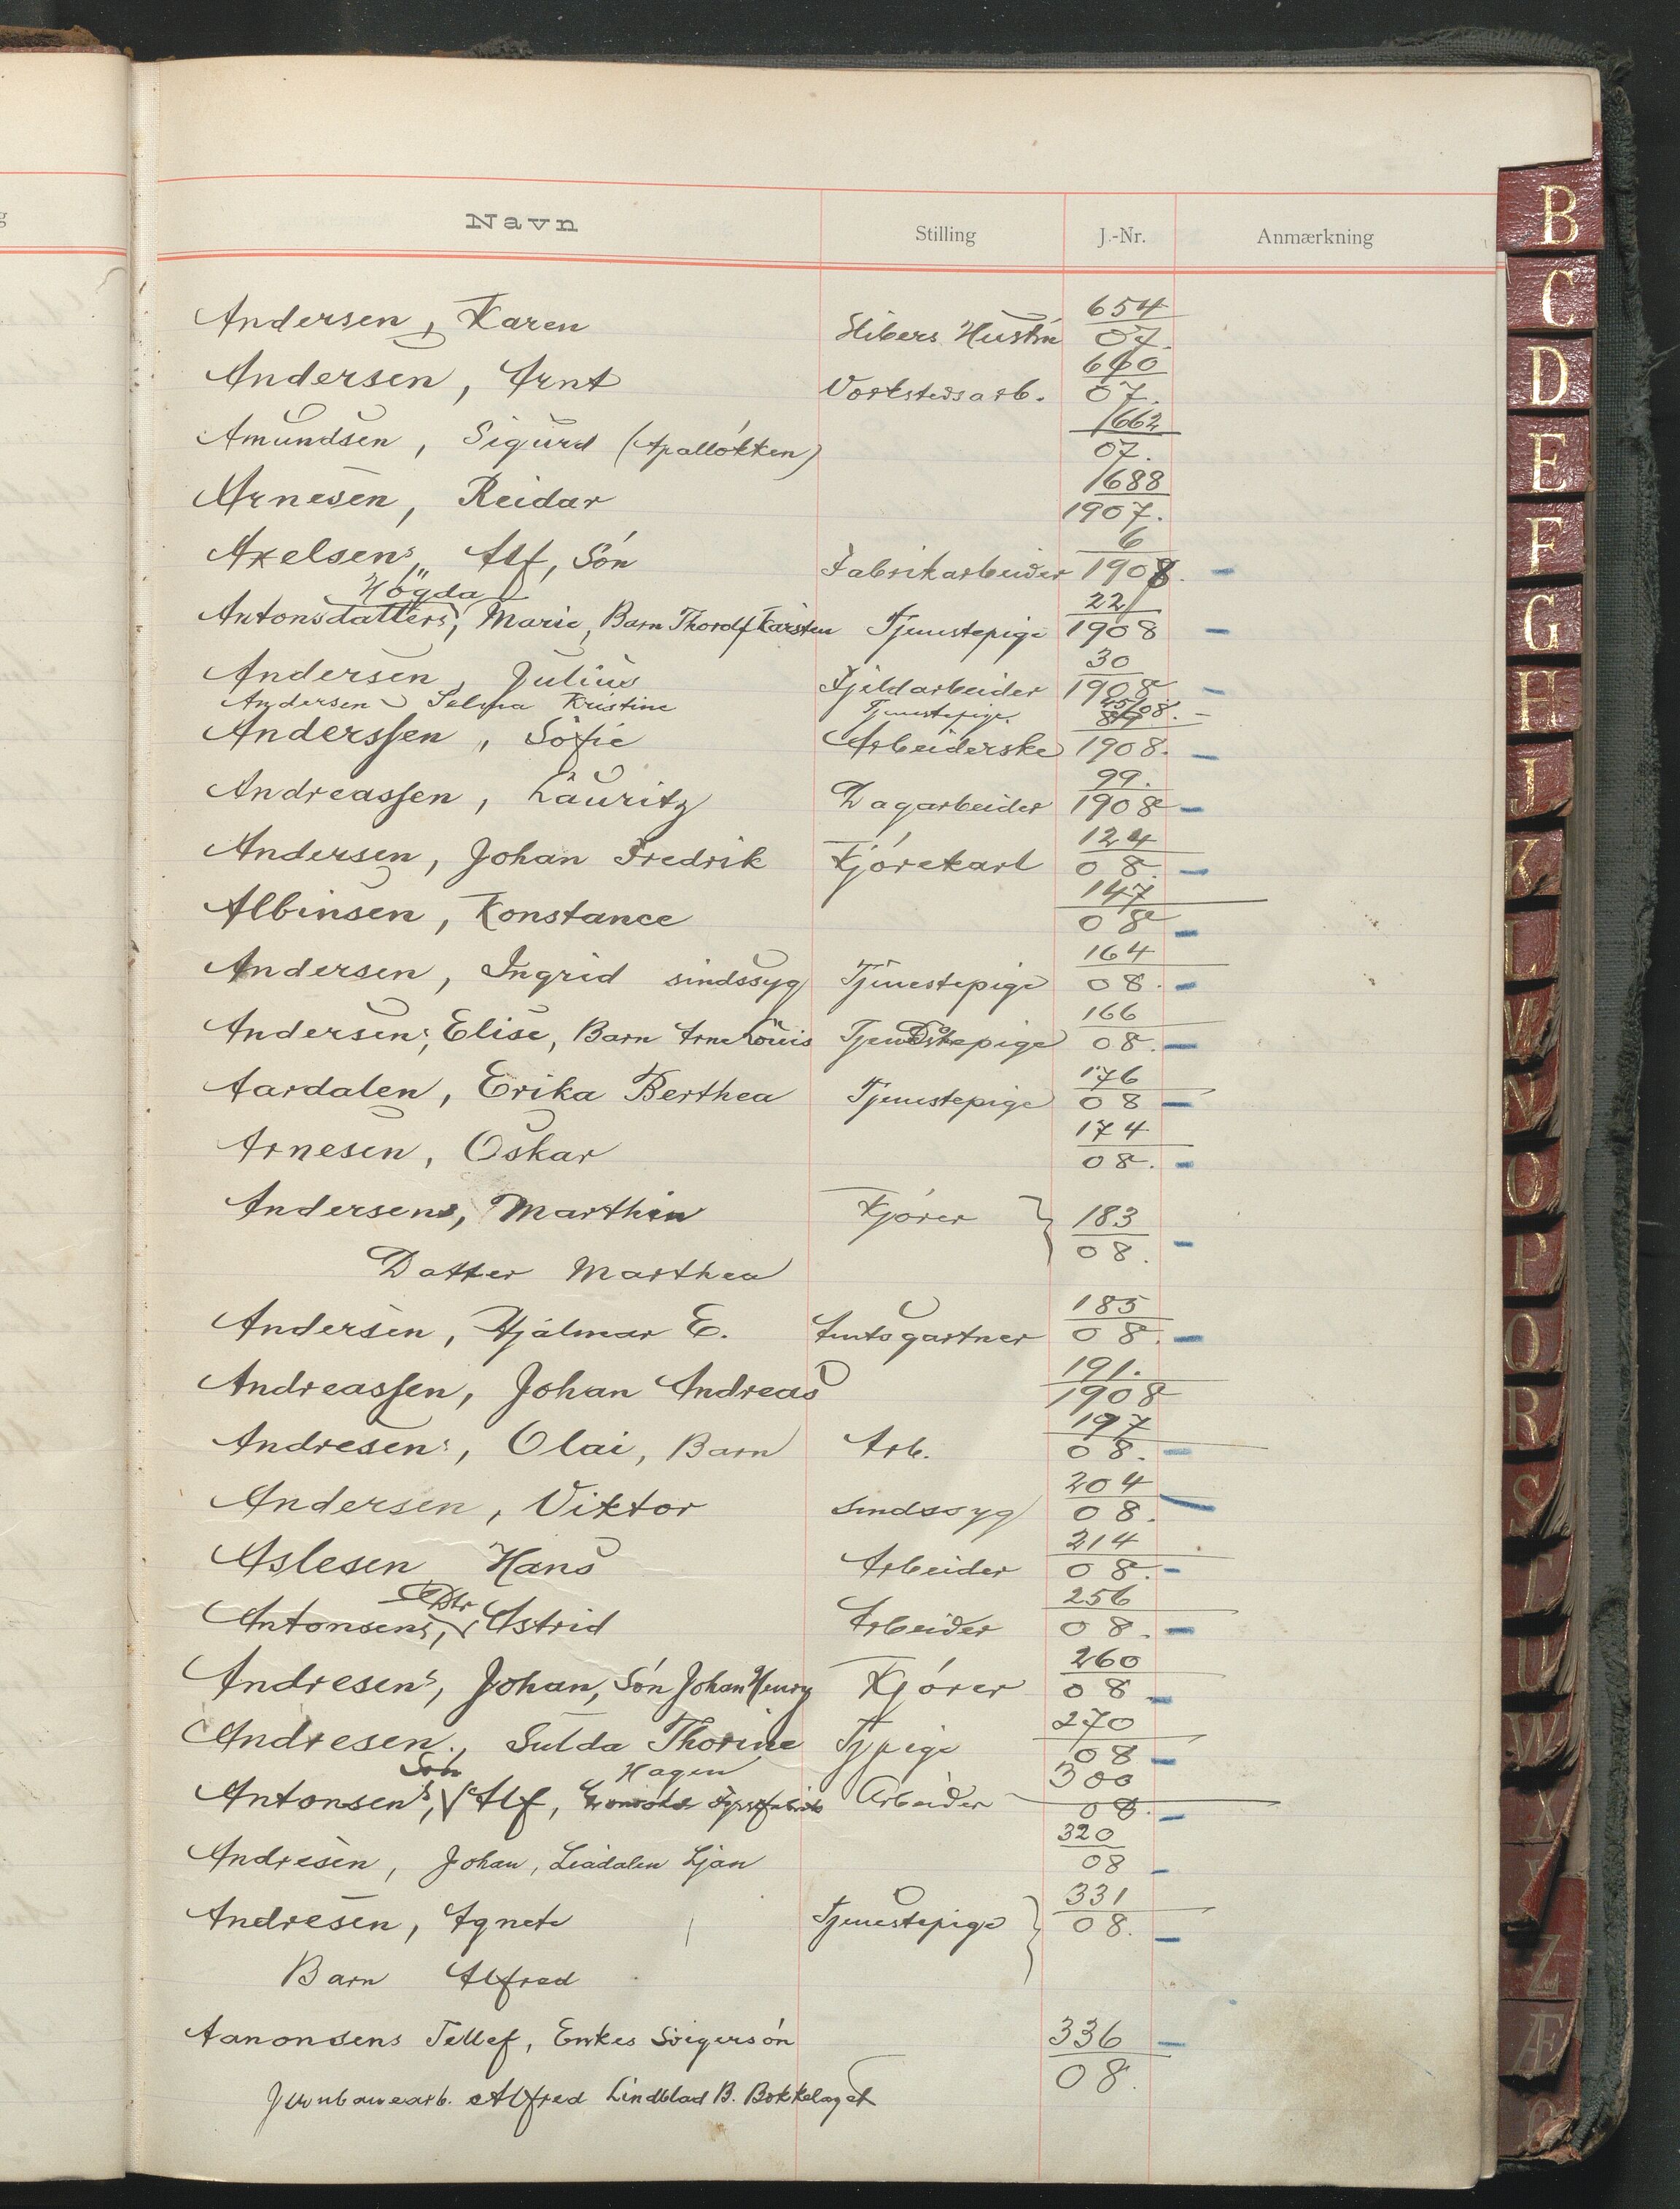 Navn Stilling J.-Nr. Anmærkning
Andersen, Karen Slibers Hustru 654/07.
Andersen, Arnt Verkstedsarb. 660/07.
Amundsen, Sigurd (Apalløkken) 1662/07.
Arnesen, Reidar 1688/1907.
Axelsens, Alf, Søn Fabrikarbeider 6/1908. -
Høgda
Antonsdatters, Marie, Barn Thorolf Karsten Tjenestepige 22/1908 -
Andersen, Julius Fjeldarbeider 30/1908 -
Andersen Selma Kristine Tjenestepige 45/08. -
Anderssen, Sofie Arbeiderske 89/1908. -
Andreassen, Lauritz Dagarbeider 99./1908 -
Andersen, Johan Fredrik Kjørekarl 124/08. -
Albinsen, Konstance 147/08 -
Andersen, Ingrid sindssyg Tjenestepige 164/08. -
Andersens, Elise, Barn Arne Louis Tjenestepige 166/08. -
Aardalen, Erika Berthea Tjenestepige 176/08 -
Arnesen, Oskar 174/08. -
Andersens, Marthin Kjører } 183/08. -
Datter Marthea
Andersen, Hjalmar E. Amtsgartner 185/08. -
Andreassen, Johan Andreas 191./1908
Andresens, Olai, Barn Arb. 197/08. -
Andersen, Viktor sindssyg 204/08. -
Aslesen Hans Arbeider 214/08. -
Dtr
Antonsens, Astrid Arbeider 256/08. -
Andresens, Johan, Søn Johan Henry Kjører 260/08 -
Andresen, Sulda Thorine Tjpige 270/08 -
Søn Hagen
Antonsens, Alf, Arbeider 300/08. -
Andresen, Johan, Liadalen Ljan 320/08 -
Andresen, Agnete Tjenestepige } 331/08. -
Barn Alfred
Aanonsens Tellef, Enkes Svigersøn 336/08. -
Jernbanearb. Alfred Lindblad B. Bækkelaget
B
C
D
E
F
G
H
J
K
L
M
N
O
P
Q
R
S
T
U
W
X
Y
Z
Æ
Ø